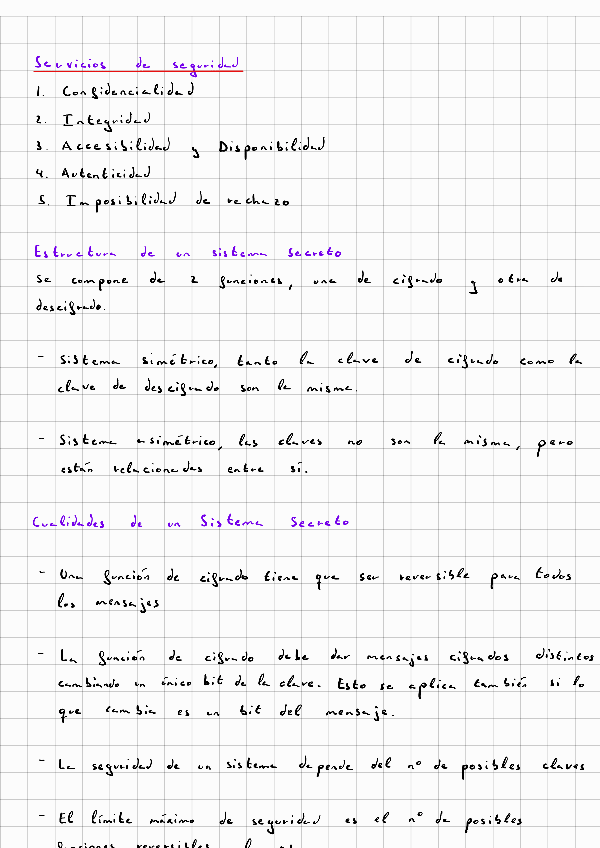 Servicios de seguridad
1. Confidencialidad
2. Integridad
3. Accesibilidad y Disponibilidad
4. Autenticidad
5. Imposibilidad de rechazo
Estructura de un sistema secreto
Se compone de 2 funciones, una de cifrado y otra de
descifrado.
- Sistema simétrico, tanto la clave de cifrado como la
clave de descifrado son la misma.
- Sistema asimétrico, las claves no son la misma, pero
están relacionadas entre sí.
Cualidades de un Sistema Secreto
- Una función de cifrado tiene que ser reversible para todos
los mensajes
- La función de cifrado debe dar mensajes cifrados distintos
cambiando un único bit de la clave. Esto se aplica también si lo
que cambia es un bit del mensaje.
- La seguridad de un sistema depende del nº de posibles claves
- El límite máximo de seguridad es el nº de posibles
funciones reversibles